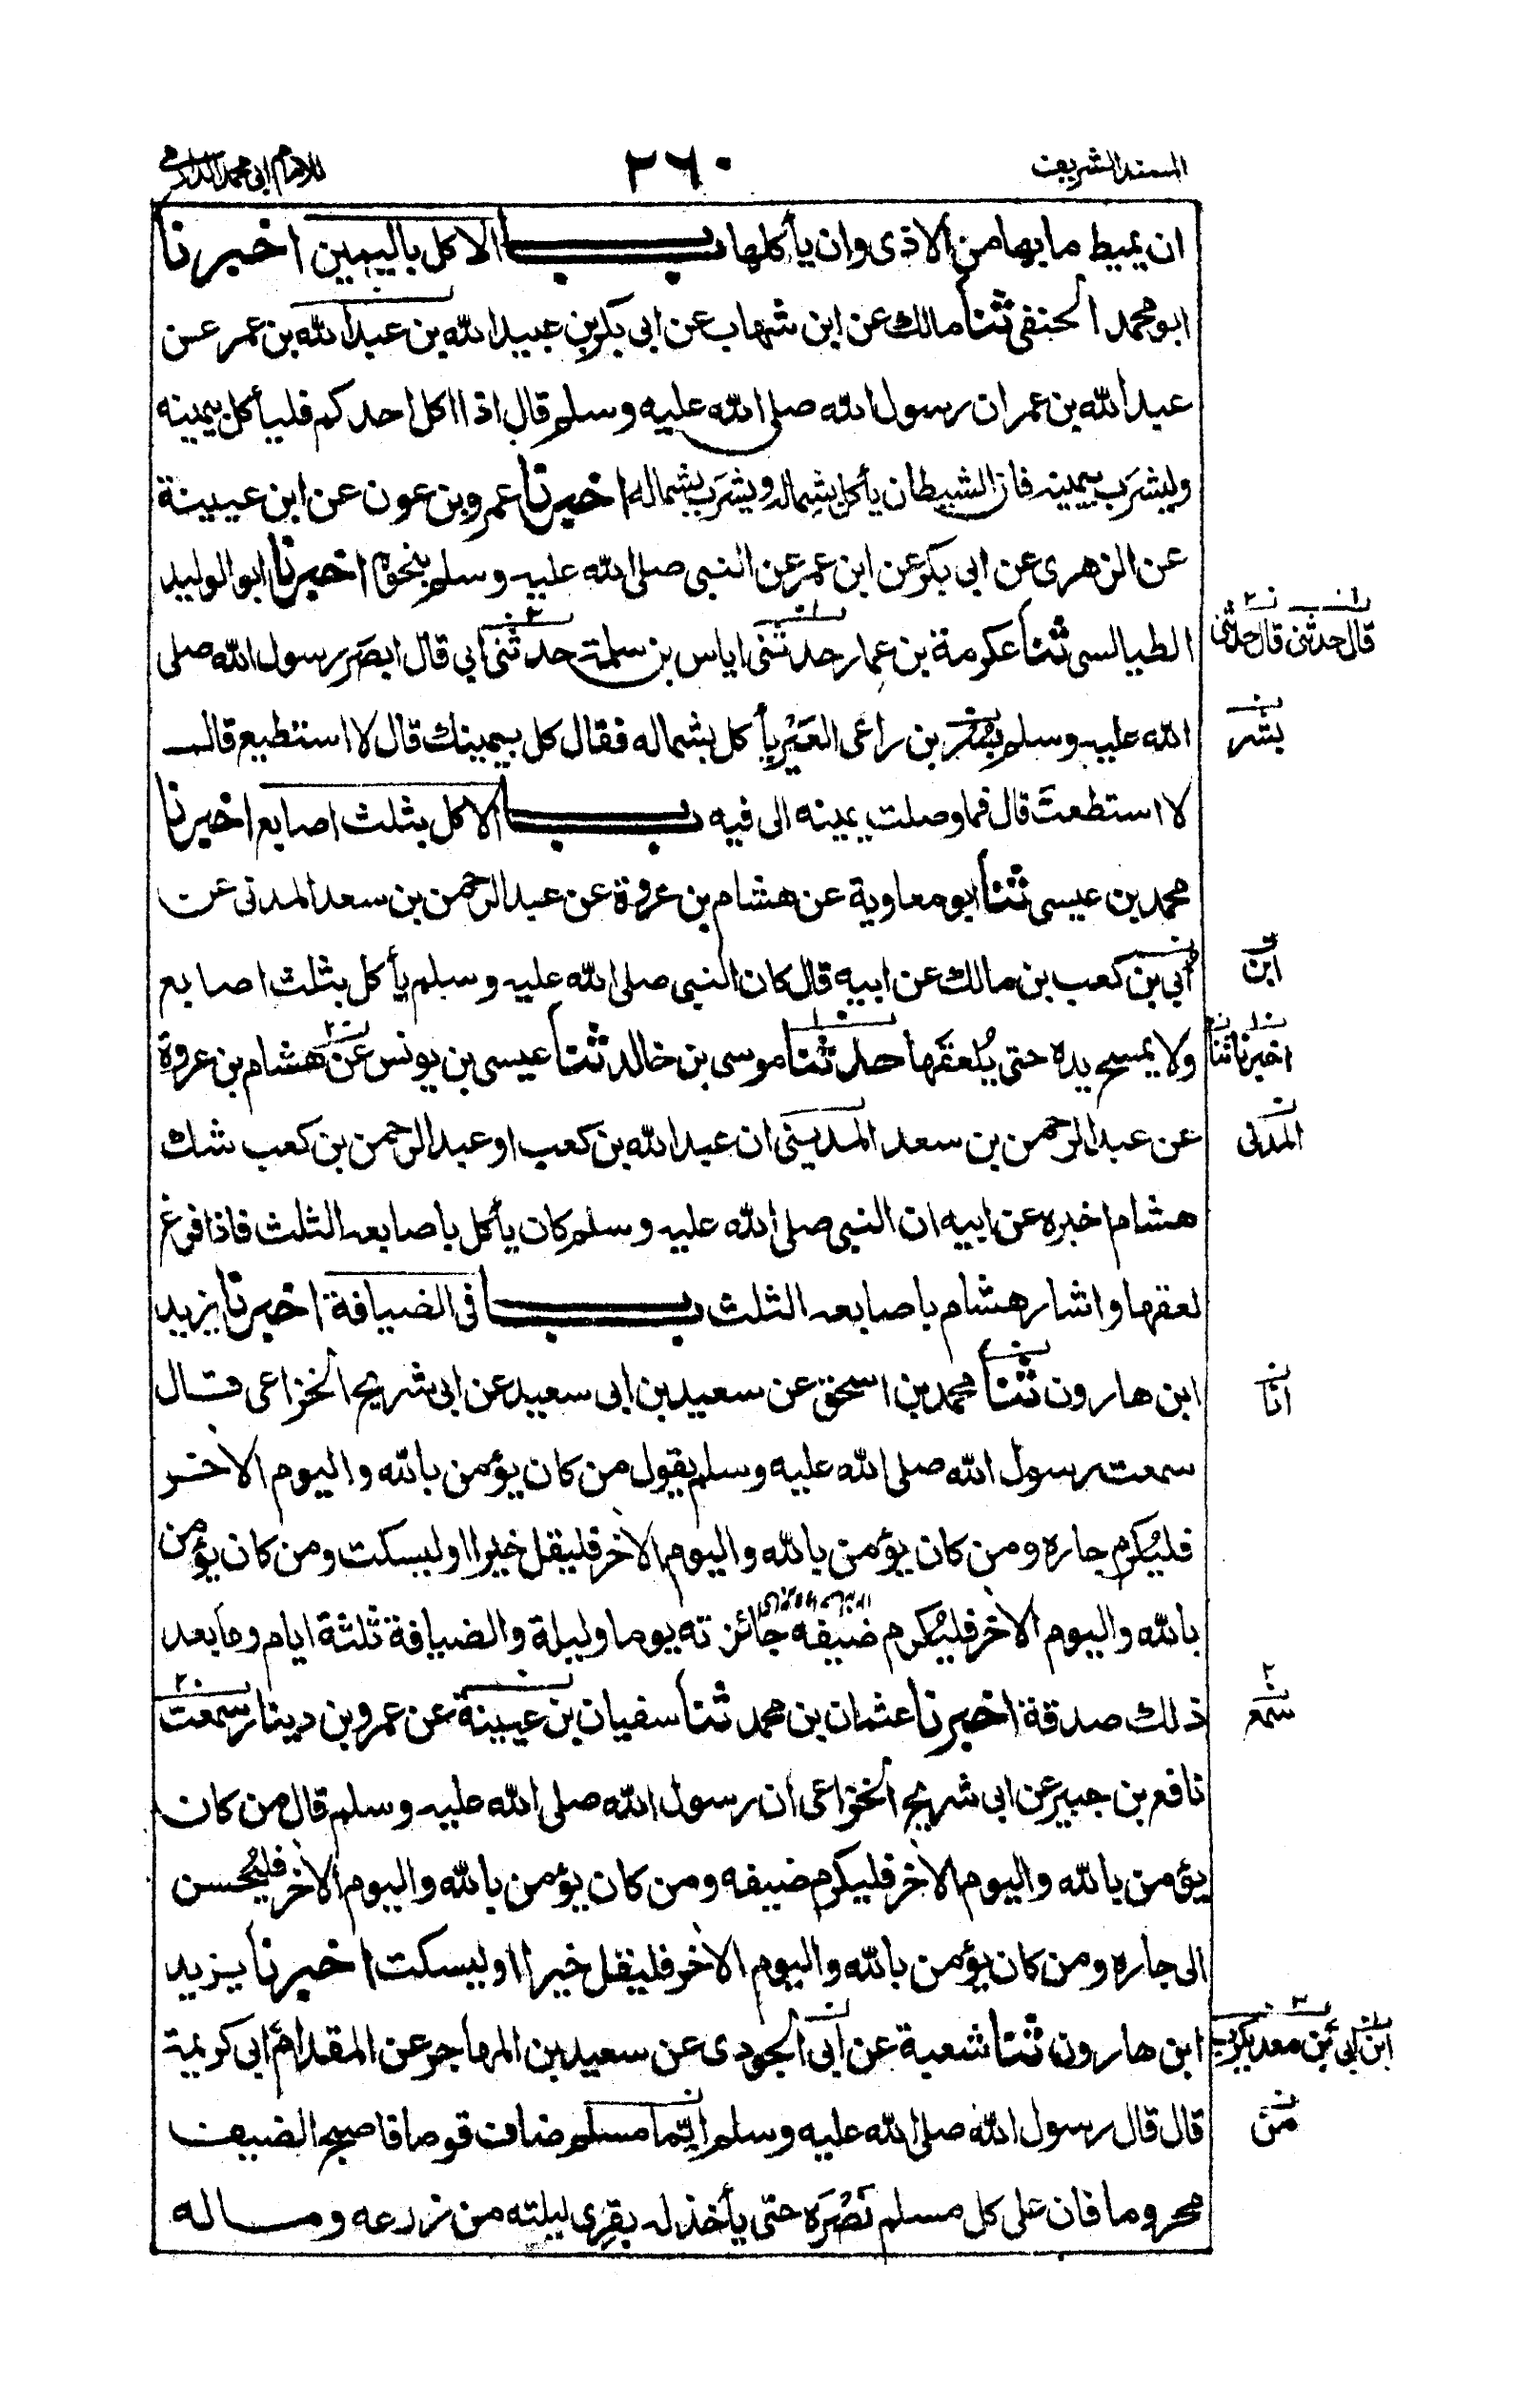 المسند الشريف
٢٦٠
للامام ابى محمد الدارمى
ان يميط مابها من الاذى وان يأكلها باب الاكل باليمين اخبرنا
ابو محمد الحنفى ثنا مالك عن ابن شهاب عن ابى بكر بن عبيد الله بن عبد الله بن عمر عن
عبد الله بن عمر ان رسول الله صلى الله عليه وسلم قال اذا اكل احدكم فليأكل بيمينه
وليشرب بيمينه فان الشيطان يأكل بشماله ويشرب بشماله اخبرنا عمرو بن عون عن ابن عيينة
عن الزهرى عن ابى بكر عن ابن عمر عن النبى صلى الله عليه وسلم بنحوه اخبرنا ابو الوليد
الطيالسى ثنا عكرمة بن عمار حدثنى اياس بن سلمة حدثنى ابى قال ابصر رسول الله صلى
قال حدثنى قال حدثنى
الله عليه وسلم بسر بن راعى العير يأكل بشماله فقال كل بيمينك قال لا استطيع قال
بشر
لا استطعت قال فما وصلت يمينه الى فيه باب الاكل بثلث اصابع اخبرنا
محمد بن عيسى ثنا ابو معاوية عن هشام بن عروة عن عبد الرحمن بن سعد المدنى عن
أبي بن كعب بن مالك عن ابيه قال كان النبى صلى الله عليه وسلم يأكل بثلث اصابع
ابن
ولا يمسح يده حتى يلعقها حدثنا موسى بن خالد ثنا عيسى بن يونس عن هشام بن عروة
اخبرنا ثنا
عن عبد الرحمن بن سعد المدينى ان عبد الله بن كعب او عبد الرحمن بن كعب شك
المدنى
هشام اخبره عن ابيه ان النبى صلى الله عليه وسلم كان يأكل باصابعه الثلث فاذا فرغ
لعقها واشار هشام باصابعه الثلث باب فى الضيافة اخبرنا يزيد
ابن هارون ثنا محمد بن اسحق عن سعيد بن ابى سعيد عن ابى شريح الخزاعى قال
انا
سمعت رسول الله صلى الله عليه وسلم يقول من كان يؤمن بالله واليوم الاخر
فليُكرم جاره ومن كان يؤمن بالله واليوم الاخر فليقل خيرا او ليسكت ومن كان يؤمن
بالله واليوم الاخر فليُكرم ضيفه جائزته يوما وليلة والضيافة ثلثة ايام وما بعد
ذلك صدقة اخبرنا عثمان بن محمد ثنا سفيان بن عيينة عن عمرو بن دينار سمعت
سمع
نافع بن جبير عن ابى شريح الخزاعى ان رسول الله صلى الله عليه وسلم قال من كان
يؤمن بالله واليوم الاخر فليكرم ضيفه ومن كان يؤمن بالله واليوم الاخر فليُحسن
الى جاره ومن كان يؤمن بالله واليوم الاخر فليقل خيرا او ليسكت اخبرنا يزيد
ابن هارون ثنا شعبة عن ابى الجودى عن سعيد بن المهاجر عن المقدام ابى كريمة
ابن ابى بن معديكرب
قال قال رسول الله صلى الله عليه وسلم ايّما مسلم ضاف قوما فاصبح الضيف
من
محروما فان على كل مسلم نَصْرَه حتى يأخذ له بقِرى ليلته من زرعه وماله